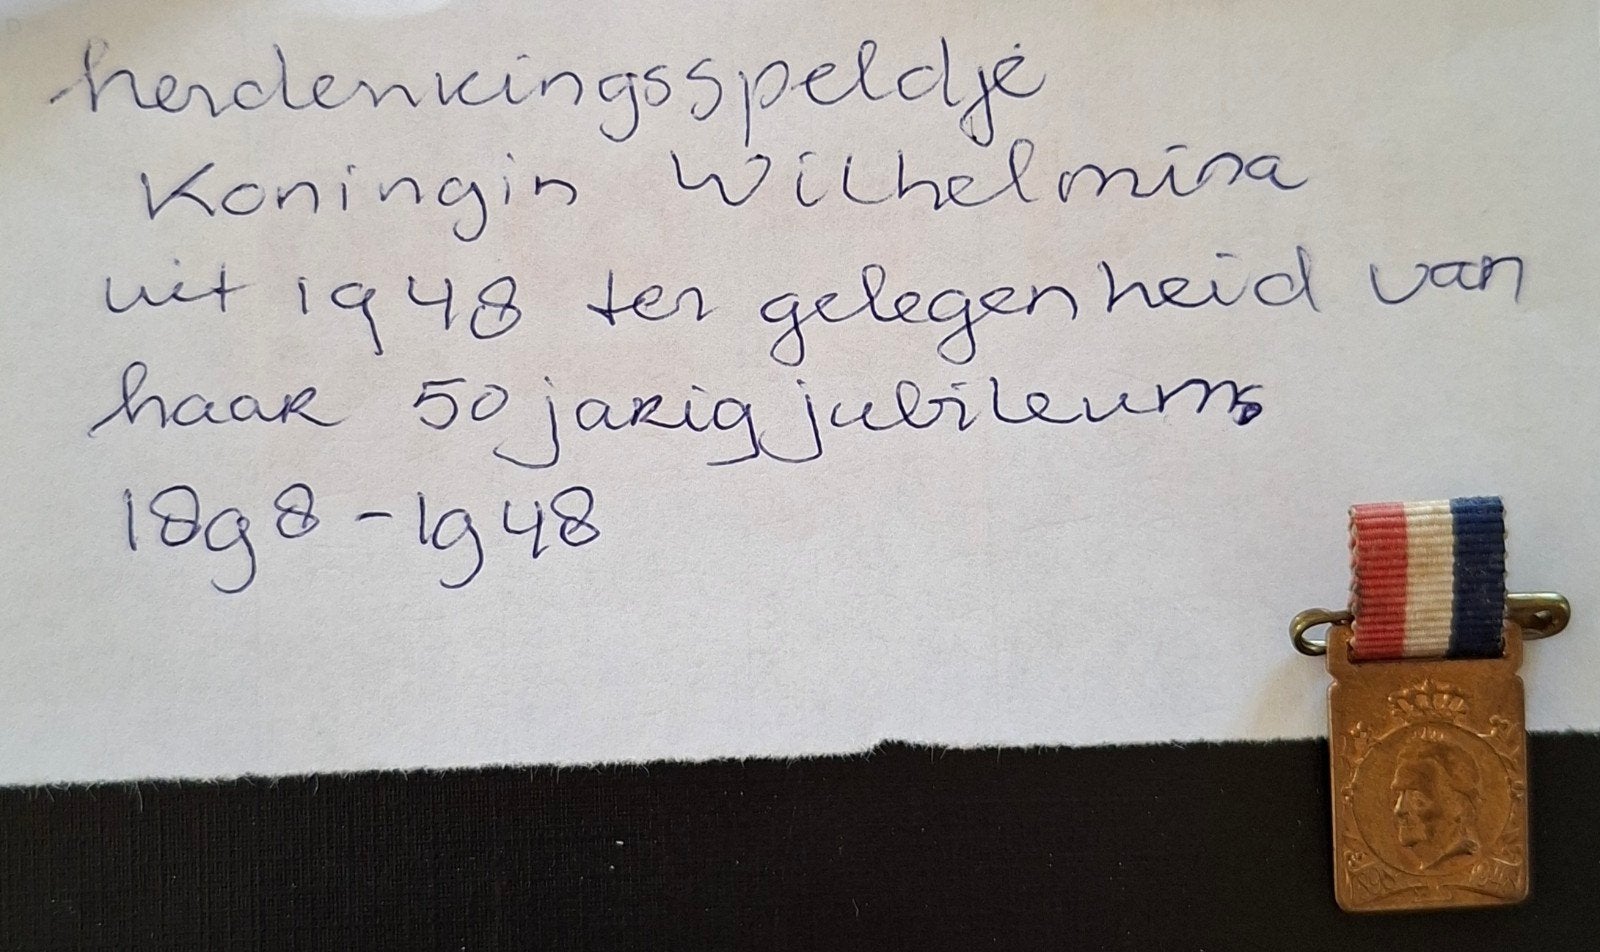 herdenkingsspeldje
Koningin Wilhelmina
uit 1948 ter gelegenheid van
haar 50 jarig jubileums
1898-1948